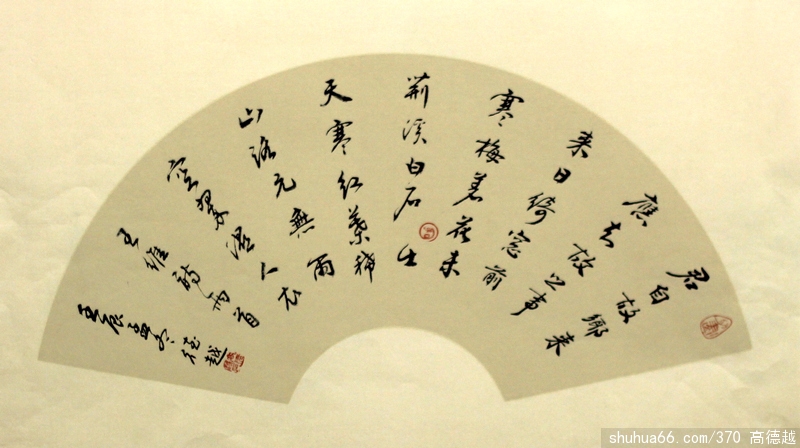 君自故鄉来
應知故乡事
来日绮窓前
寒梅着花未
荊溪白石出
天寒红葉稀
山路元無雨
空翠濕人衣
王維詩两首
壬辰 德越
shuhua66.com/370 高德越